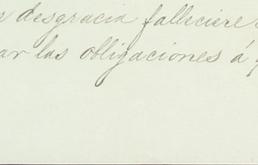 desgracia falleciere
ar las obligaciones á